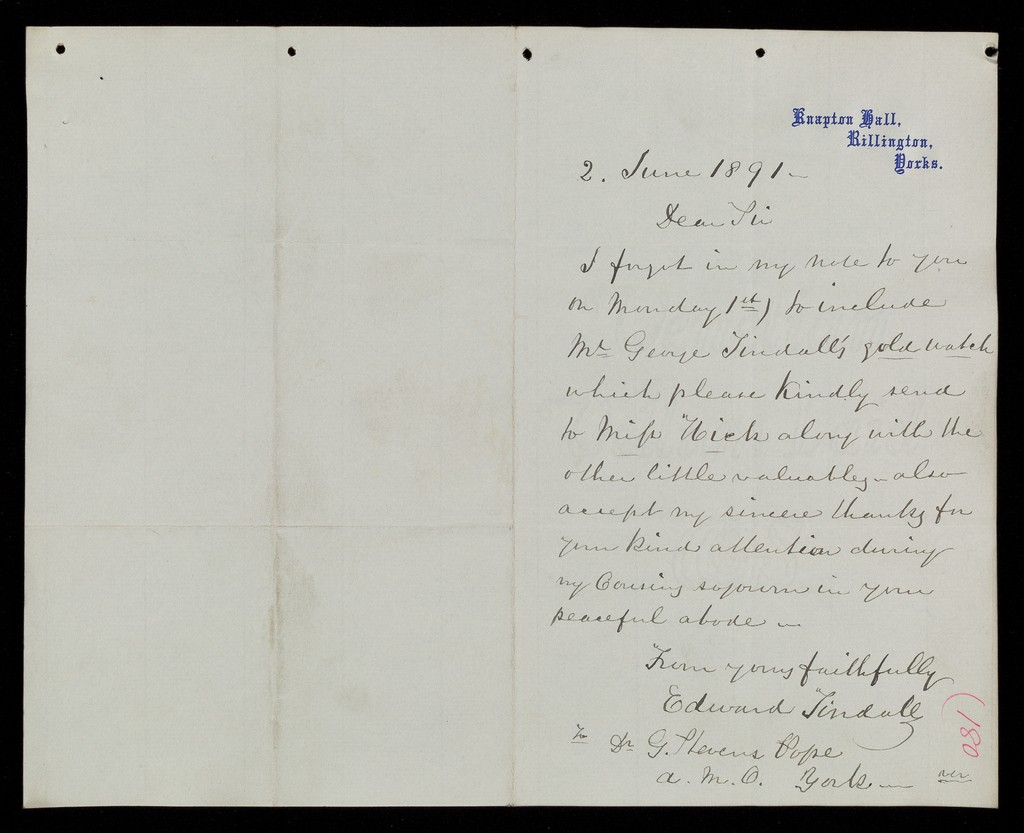 Knapton Hall,
Rillington,
Yorks.
2. June 1891 -
Dear Sir
I forgot in my note to you
on Monday 1st) to include
Mr George Tindall's gold watch
which please kindly send
to Miss Hick along with the
other little valuables - also
accept my sincere thanks for
your kind attention during
my Cousins sojourn in your
peaceful abode -
From yours faithfully
Edward Tindall
To Dr G. Stevens Pope
A. M. O. York -
over
180)